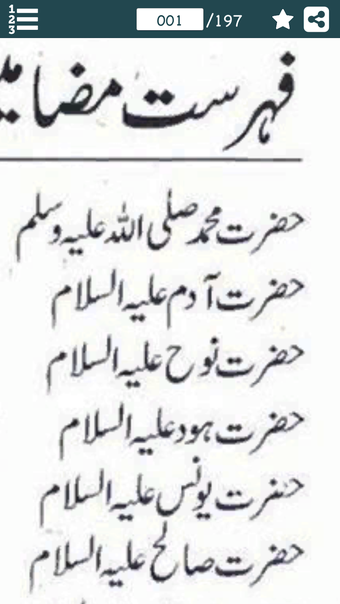 001 /197
فہرست مضامین
حضرت محمد صلی اللہ علیہ وسلم
حضرت آدم علیہ السلام
حضرت نوح علیہ السلام
حضرت ہود علیہ السلام
حضرت یونس علیہ السلام
حضرت صالح علیہ السلام